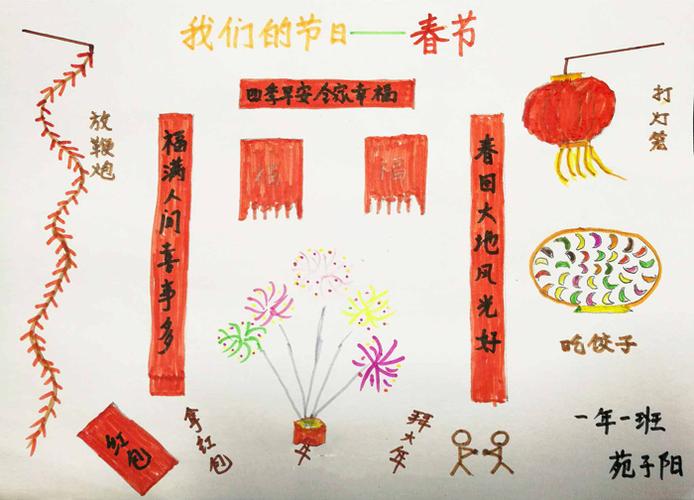 我们的节日——春节
四季早安令家幸福
放鞭炮
福满人间喜事多
福
福
春日大地风光好
打灯笼
吃饺子
红包
拿红包
年
拜大年
一年一班
苑子阳